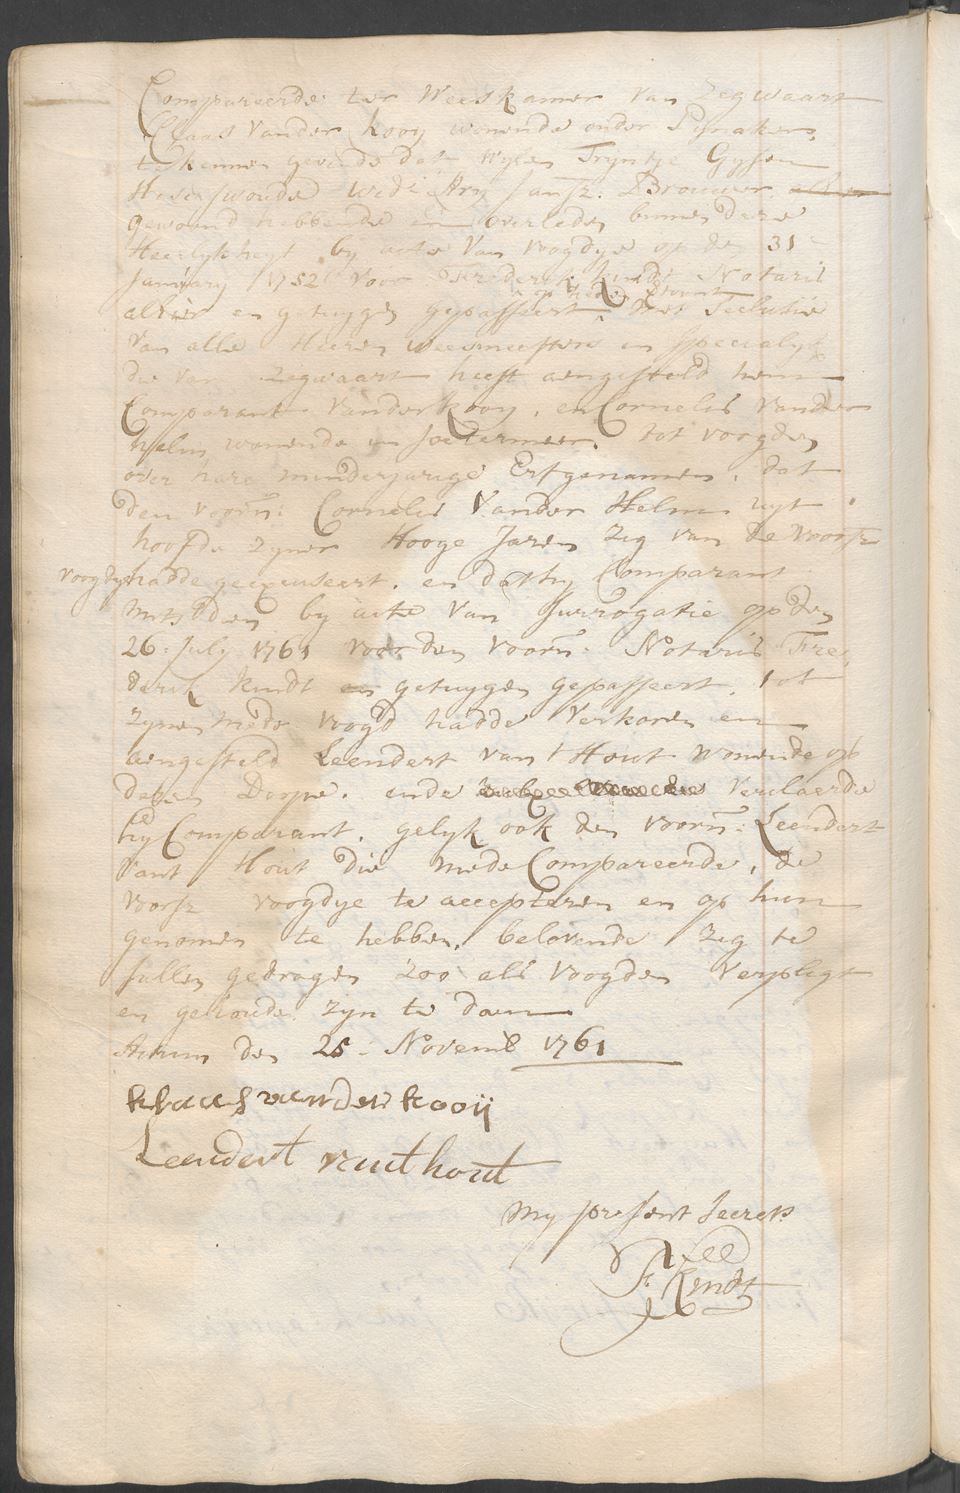 Compareerde ter Weeskamer van Zegwaart
Claas vander Kooy wonende onder Pynaker,
te kennen gevende dat wylen Tryntje Gysen
Heverswoude wed: Ary Jansz. Brouwer
gewoond hebbende en overleden binnen dese
Heerlykheyt by acte van voogdye op den 31
January 1752 voor Frederik Kindt Notaris
alhier en getuygen gepasseert, met seclutie
van alle Heeren weesmeesters en specialyk
die van Zegwaart heeft aengesteld hem
Comparant vander Kooy, en Cornelis vander
Helm wonende in Soetermeer, tot voogden
over hare minderjarige Erfgenamen, dat
den voorn: Cornelis vander Helm uyt
hoofde zyner Hooge Jaren zig van de voorsz
voogdye hadde geexcuseert, en dat hy Comparant
mitsdien by acte van surrogatie op den
26 July 1761 voor den voorn: Notaris Fre,
derik Kindt en getuygen gepasseert, tot
zynen mede voogd hadde verkoren en
aengesteld Leendert van 't Hout wonende op
desen Dorpe, ende verclaerde
hy Comparant, gelyk ook den voorn: Leendert
vant Hout die mede Compareerde, de
voorsz voogdye te accepteren en op hun
genomen te hebben, belovende zig te
sullen gedragen zoo als voogden verpligt
en gehouden zyn te doen
Actum den 25 Novemb 1761
klaas vander kooij
Leendert vant hout
My present Secrets
F: Kindt